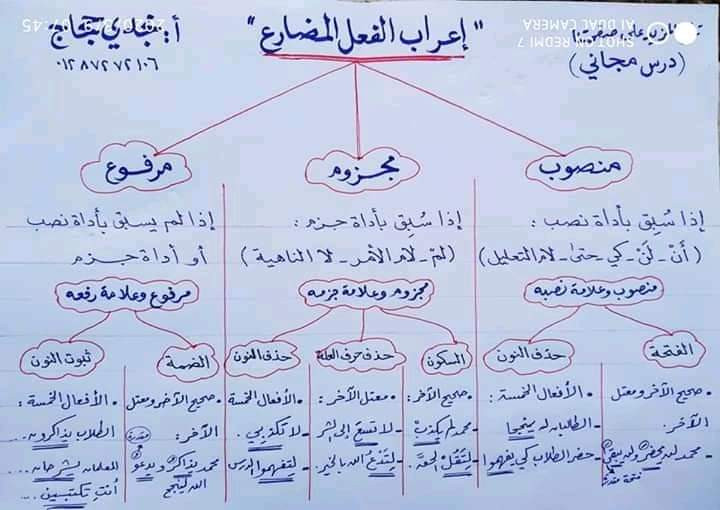 " إعراب الفعل المضارع "
أ: مجدي
٠١٢٨٧٢٧٢١٠٦
(درس مجاني)
AI DUAL CAMERA
SHOT ON REDMI 7
منصوب
إذا سُبِق بأداة نصب :
( أنْ - لَنْ - كي - حتى - لام التعليل )
منصوب وعلامة نصبه
الفتحة
• صحيح الآخر ومعتل
الآخر:
• محمد لن يحضرَ ولن يبقى
فتحة مقدرة
حذف النون
• الأفعال الخمسة:
• الطالبان لن ينجحا
• حضر الطلاب كي يفهموا
مجزوم
إذا سُبِق بأداة جزم :
( لمْ - لام الأمر - لا الناهية )
مجزوم وعلامة جزمه
السكون
• صحيح الآخر:
• محمد لم يكذبْ
• لِتَقُلْ الحقَّ.
حذف حرف العلة
• معتل الآخر:
• لا تسعَ إلى الشر
• لِتَدْعُ اللهَ بالخير.
حذف النون
• الأفعال الخمسة
• لا تكذبي.
• لِتفهموا الدرس
مرفوع
إذا لم يسبق بأداة نصب
أو أداة جزم
مرفوع وعلامة رفعه
الضمة
• صحيح الآخر ومعتل
الآخر: مقدرة
محمد يذاكرُ ويدعو
الله لينجح
ثبوت النون
• الأفعال الخمسة:
الطلاب يذاكرون..
المعلمان يشرحان...
أنتِ تكتبين...